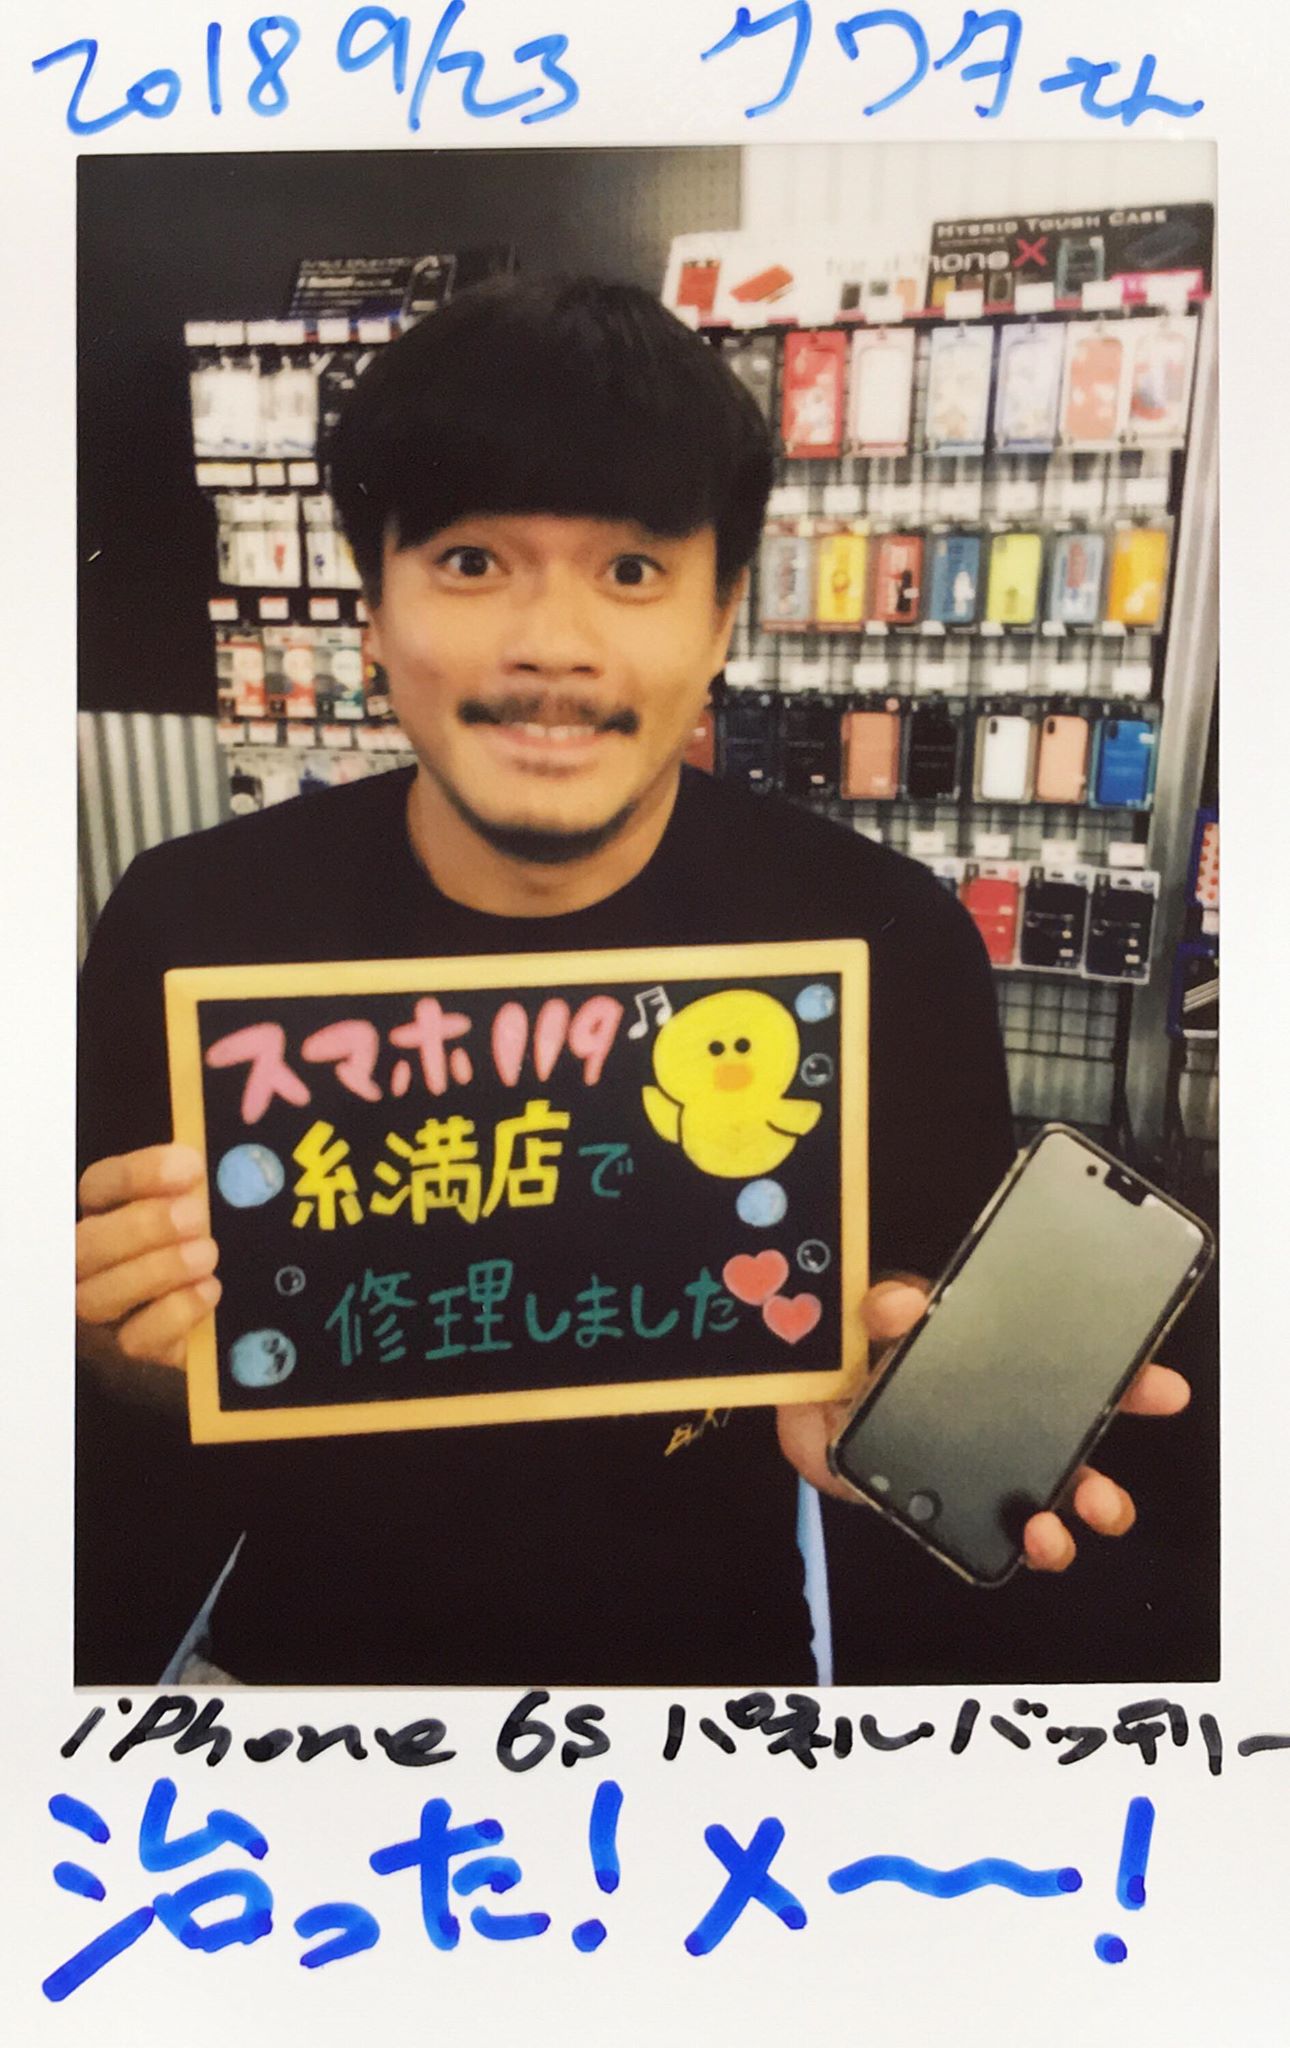 2018 9/23 クワタさん
HYBRID TOUGH CASE
for iPhone X
スマホ119
糸満店で
修理しました
iPhone 6s パネルバッテリー
治った!メ〜!